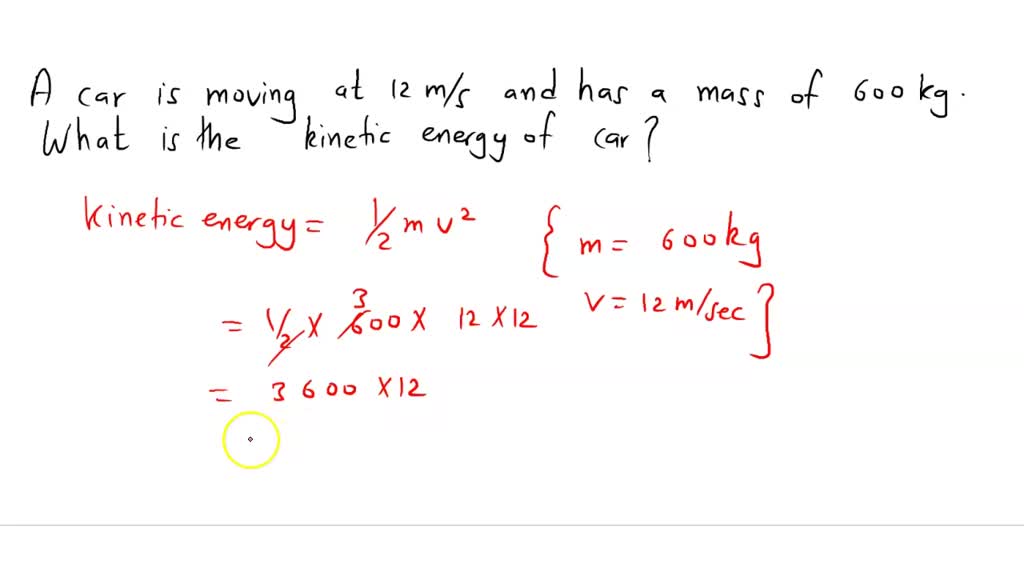 A car is moving at 12 m/s and has a mass of 600 kg.
What is the kinetic energy of car?
kinetic energy = 1/2 m v²
{ m = 600 kg
v = 12 m/sec }
= 1/2 × 600 × 12 × 12
3
= 3600 × 12